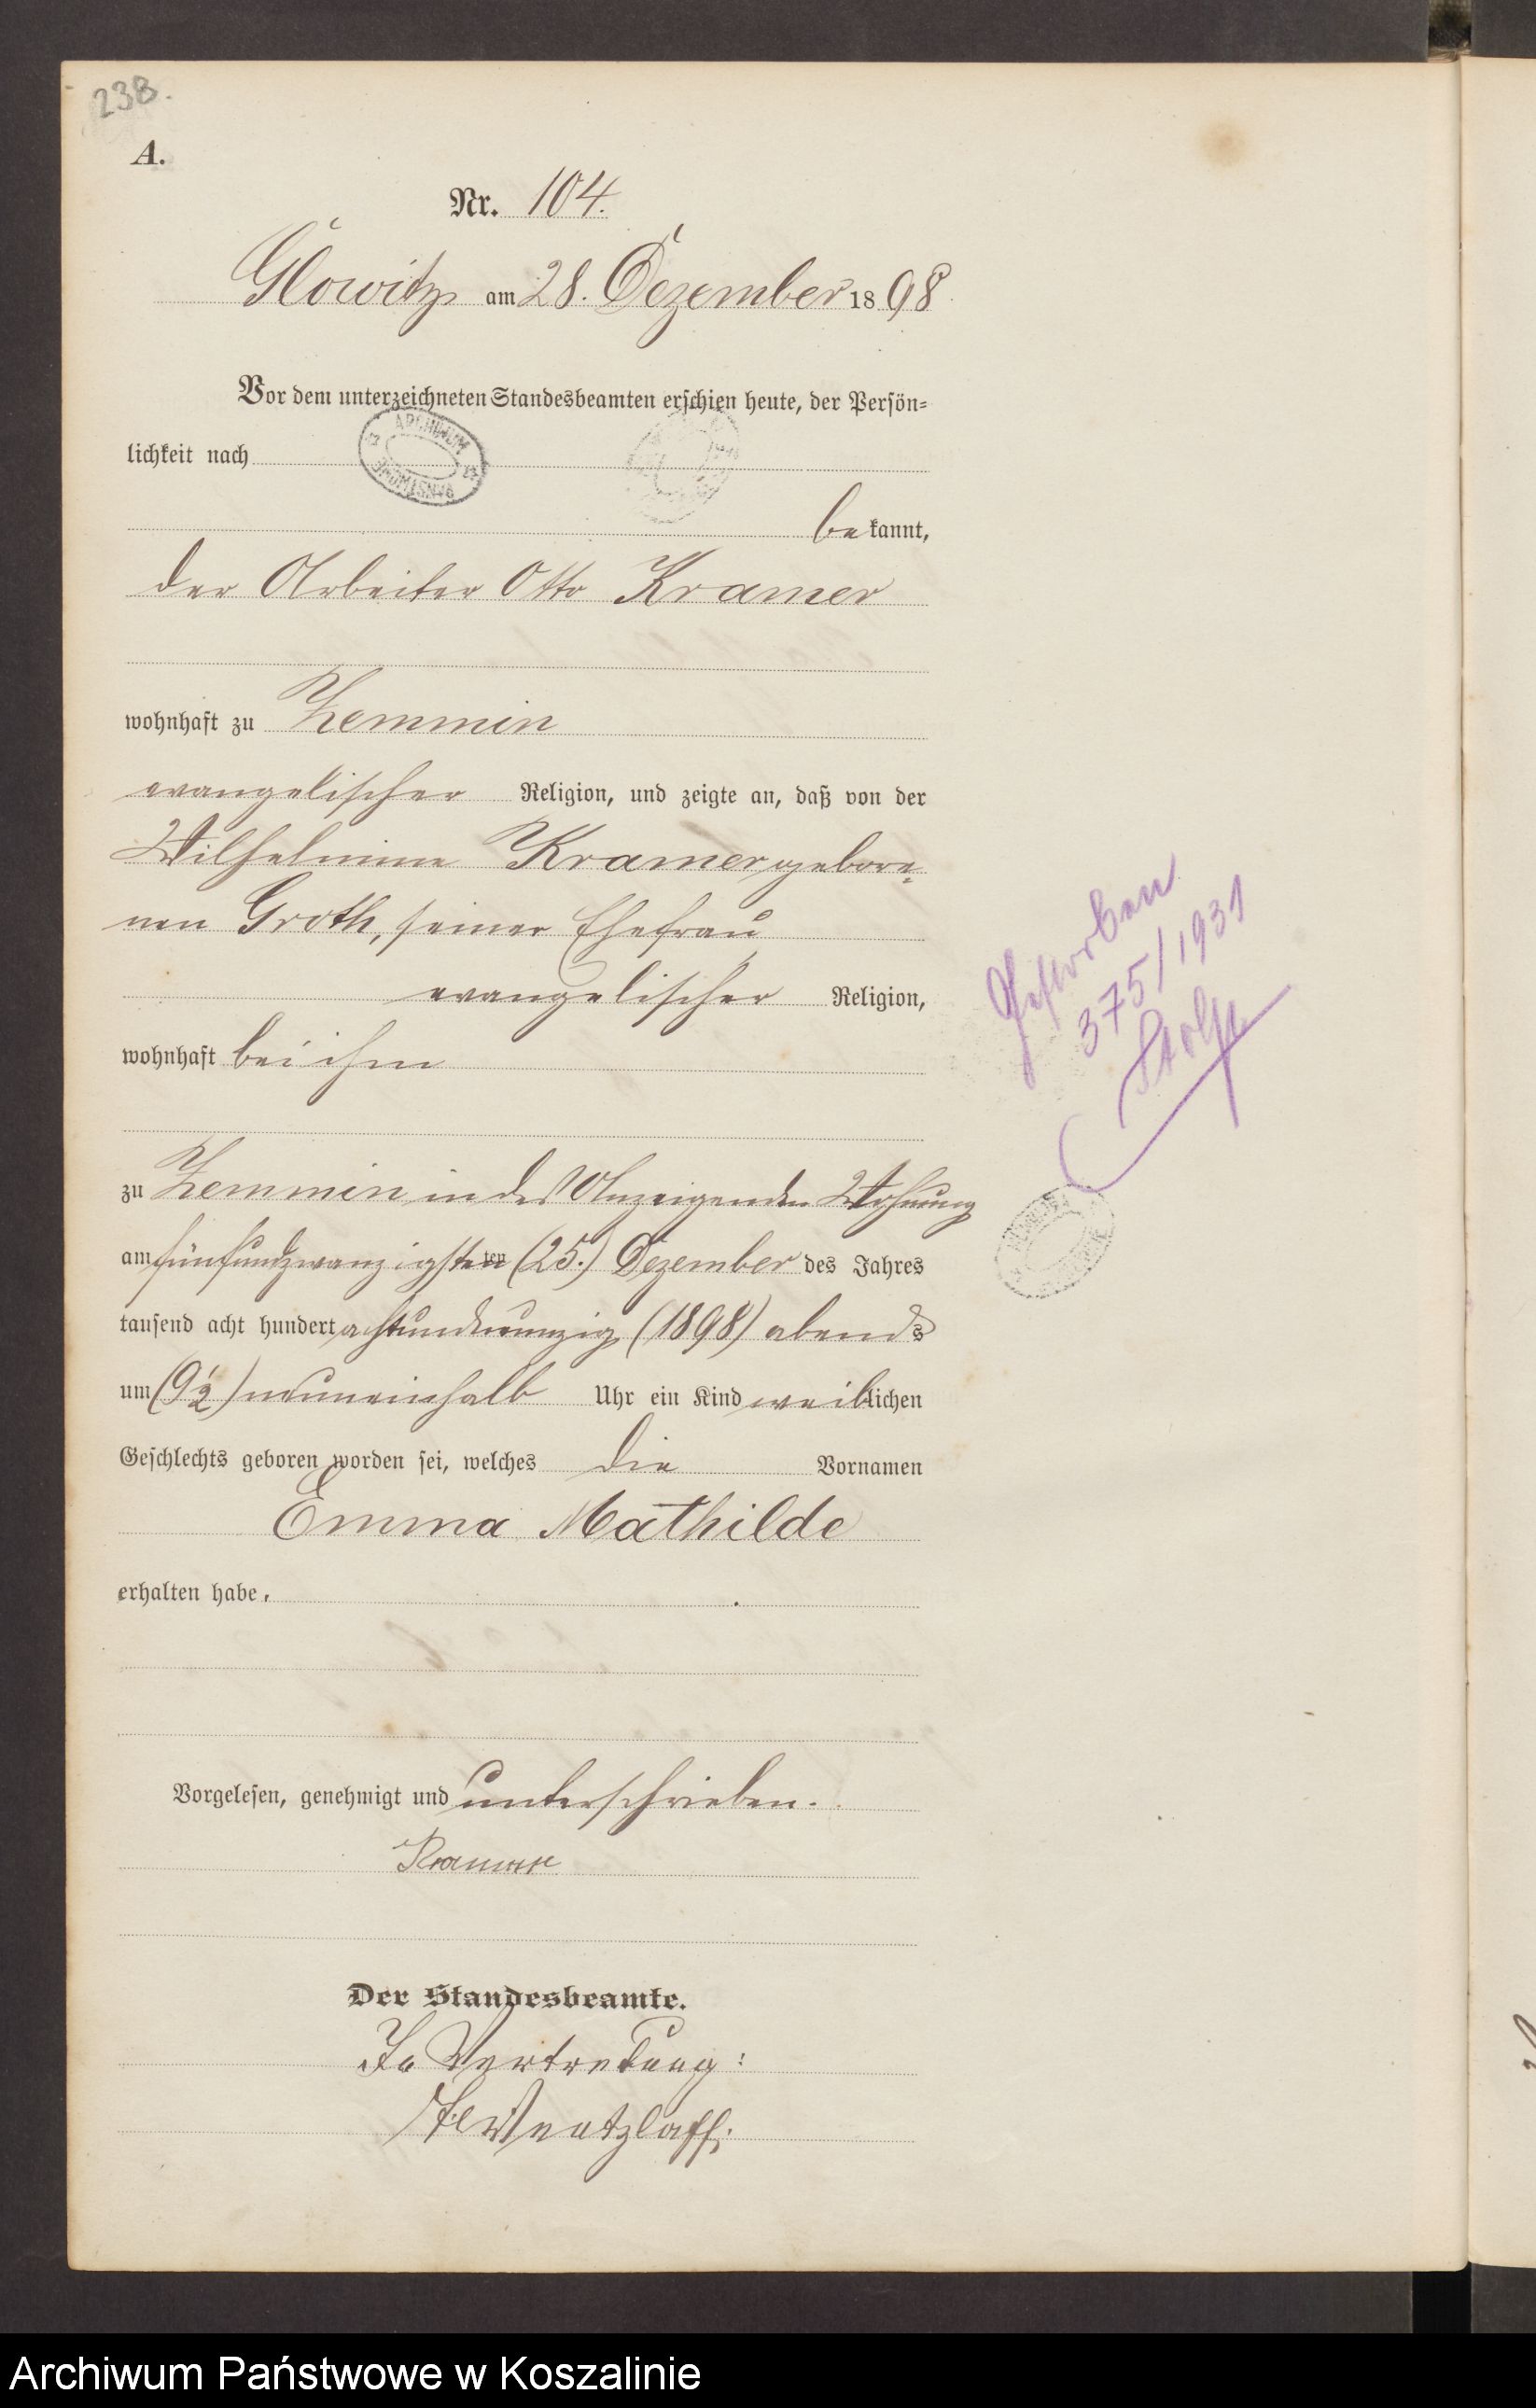 238.
A.
Nr. 104.
Glowitz am 28. Dezember 1898
Vor dem unterzeichneten Standesbeamten erschien heute, der Persön=
lichkeit nach
ARCHIWUM
be kannt,
der Arbeiter Otto Kramer
wohnhaft zu Zemmin
evangelischer Religion, und zeigte an, daß von der
Wilhelmine Kramer gebore=
nen Groth, seiner Ehefrau
evangelischer Religion,
wohnhaft bei ihm
zu Zemmin in des Anzeigenden Wohnung
am fünfundzwanzigsten (25.) Dezember des Jahres
tausend acht hundert achtundneunzig (1898) abends
um (9½) neuneinhalb Uhr ein Kind weiblichen
Geschlechts geboren worden sei, welches die Vornamen
Emma Mathilde
erhalten habe.
Vorgelesen, genehmigt und unterschrieben.
Kramer
Der Standesbeamte.
In Vertretung:
Wentzlaff.
Gestorben
375/1931
Stolp
Archiwum Państwowe w Koszalinie